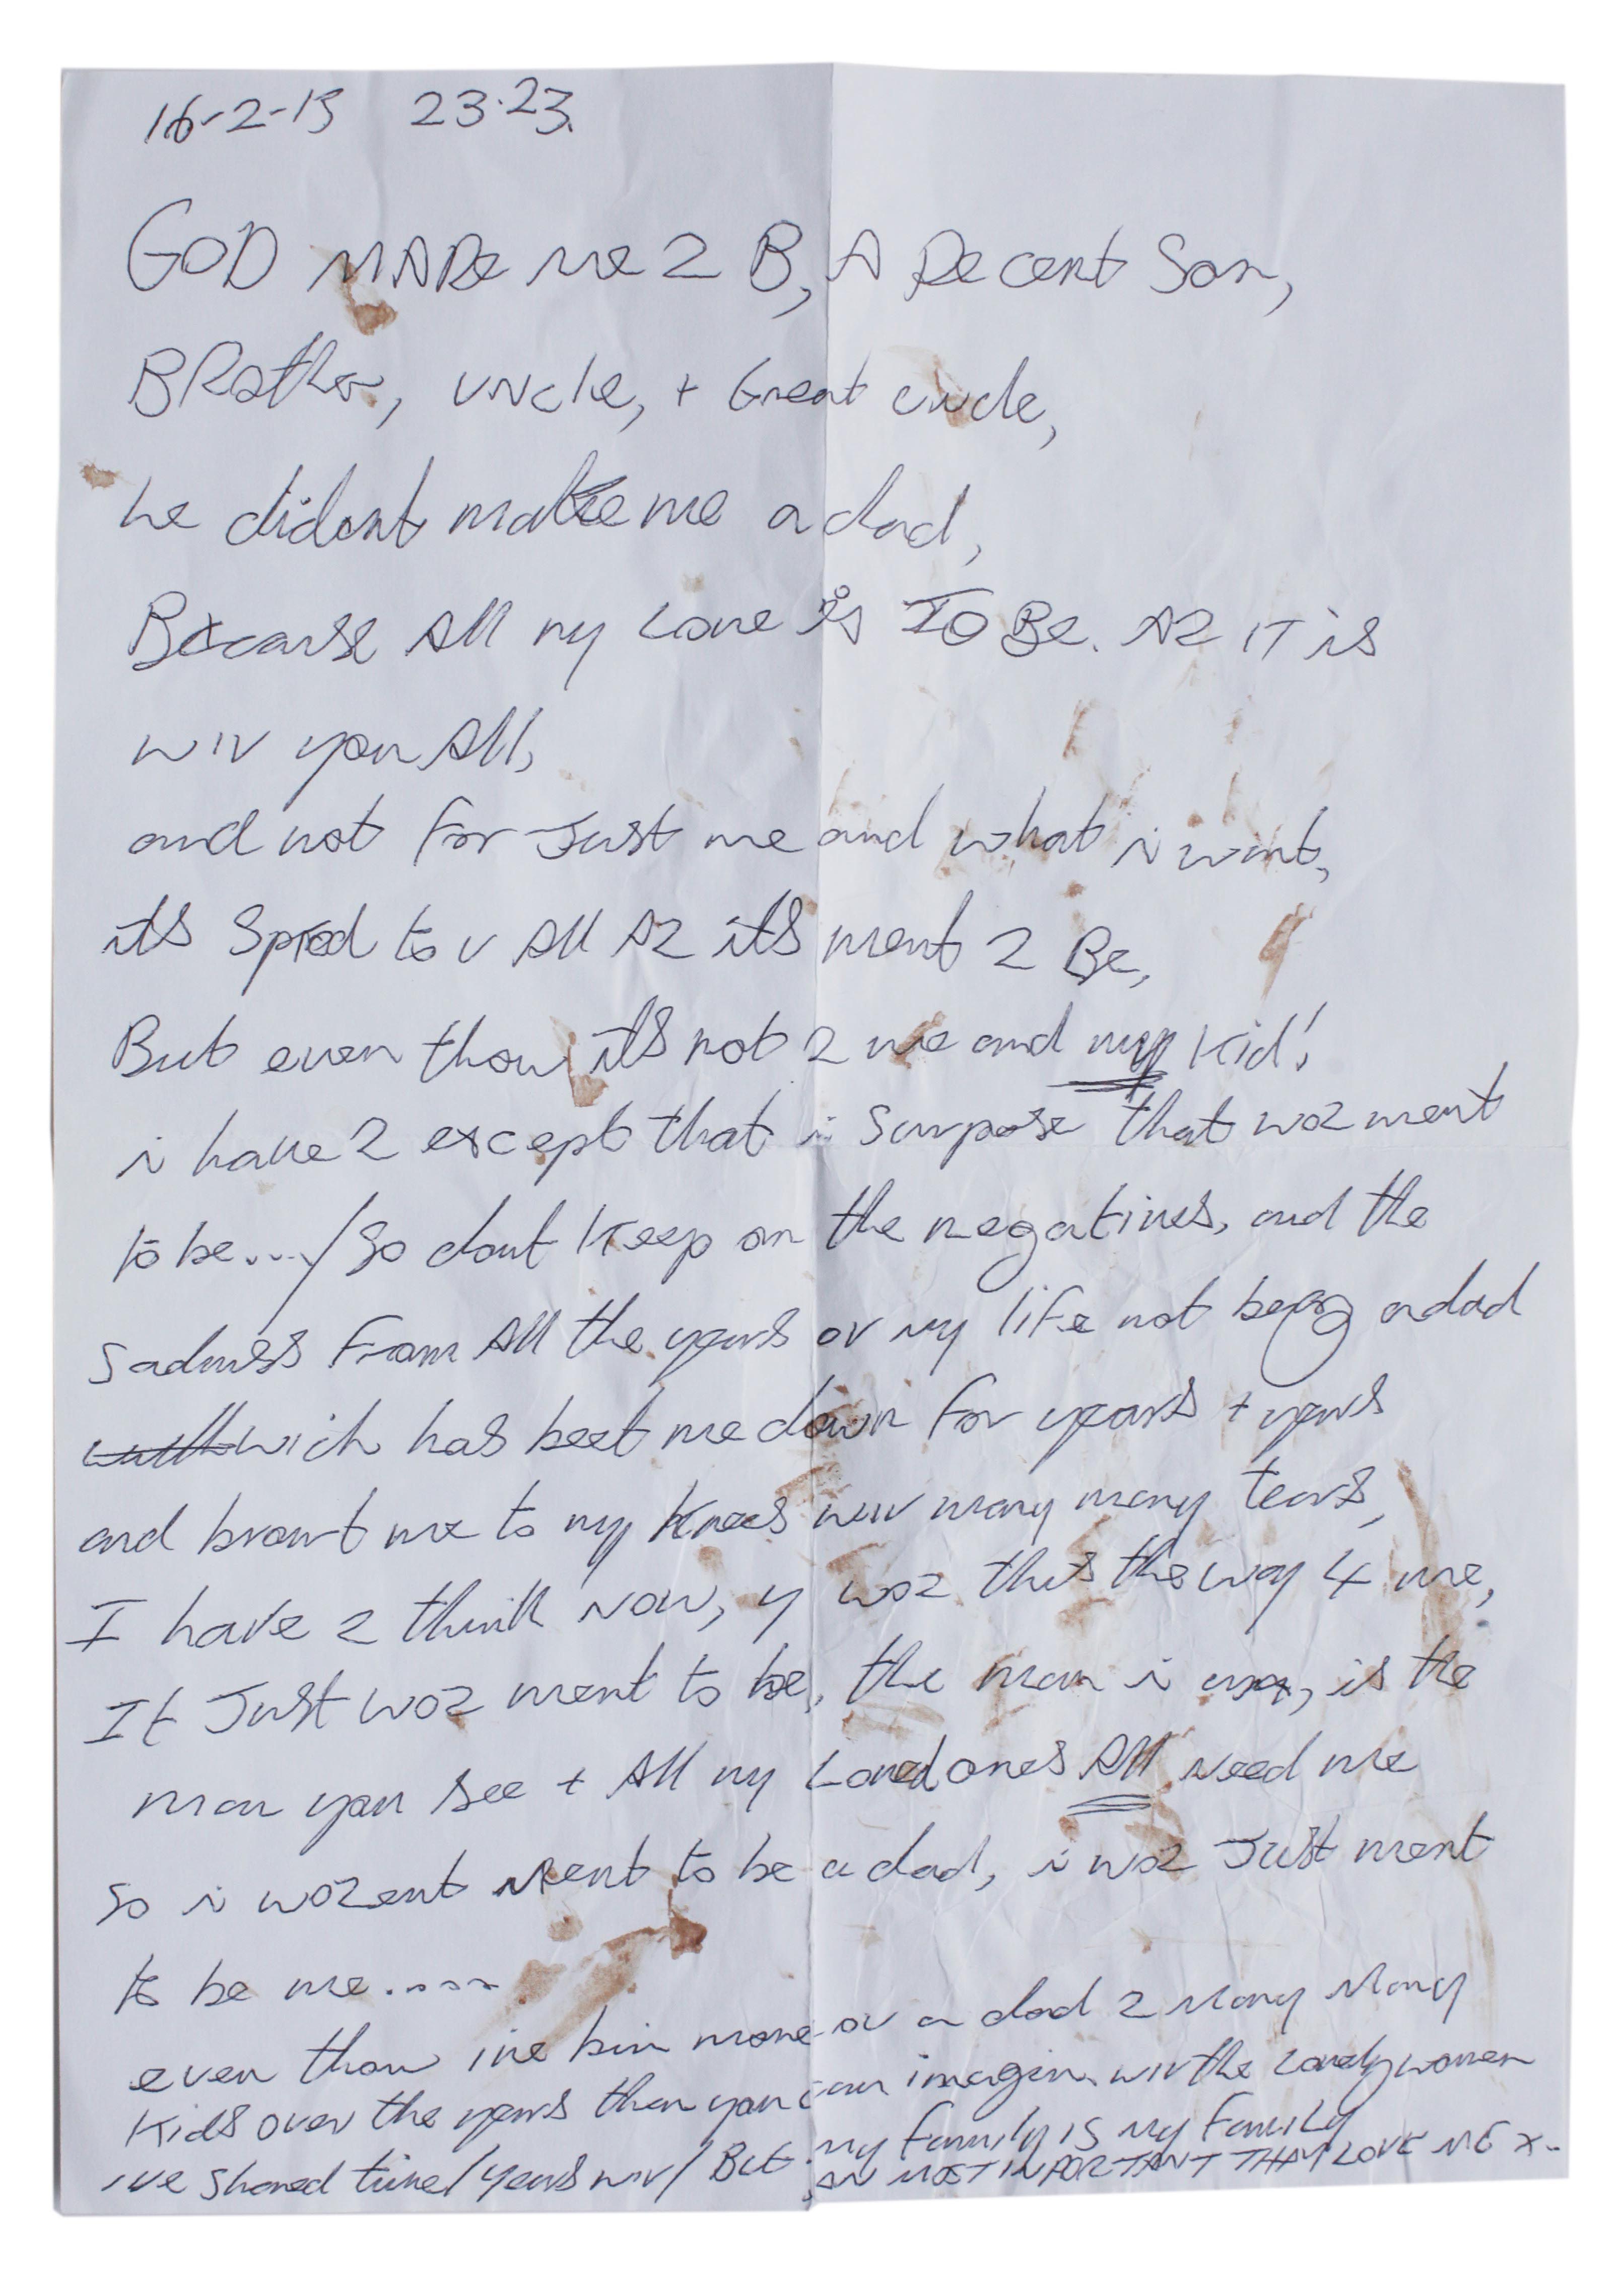 16-2-15 23.23.
GOD MADe me 2 B, A Decent Son,
BRother, UNcle, + Great uncle,
he dident make me a dad,
Because All my Love is TO Be. AZ IT is
wiv you All,
and not for Just me and what i want,
its Spred to U All AZ its ment 2 Be,
But even thow its not 2 me and my Kid!
i have 2 except that i Surpose that woz ment
to be..../ So dont Keep on the negatives, and the
sadness from All the years ov my life not being a dad
wich has beet me down for years + years
and browt me to my Knees wiv many many tears,
I have 2 think NOW, y woz this the way 4 me,
It Just woz ment to be, the man i am, is the
man you see + All my Loved ones All Need me
So i wozent Ment to be a dad, i woz Just ment
to be me.....
even thow ive bin more ov a dad 2 Many Many
Kids over the years then you can imagin wiv the Lovely women
ive Shared time/years wiv/ But my family IS My Family
AN MOST INPORTANT THAY LOVE ME X-